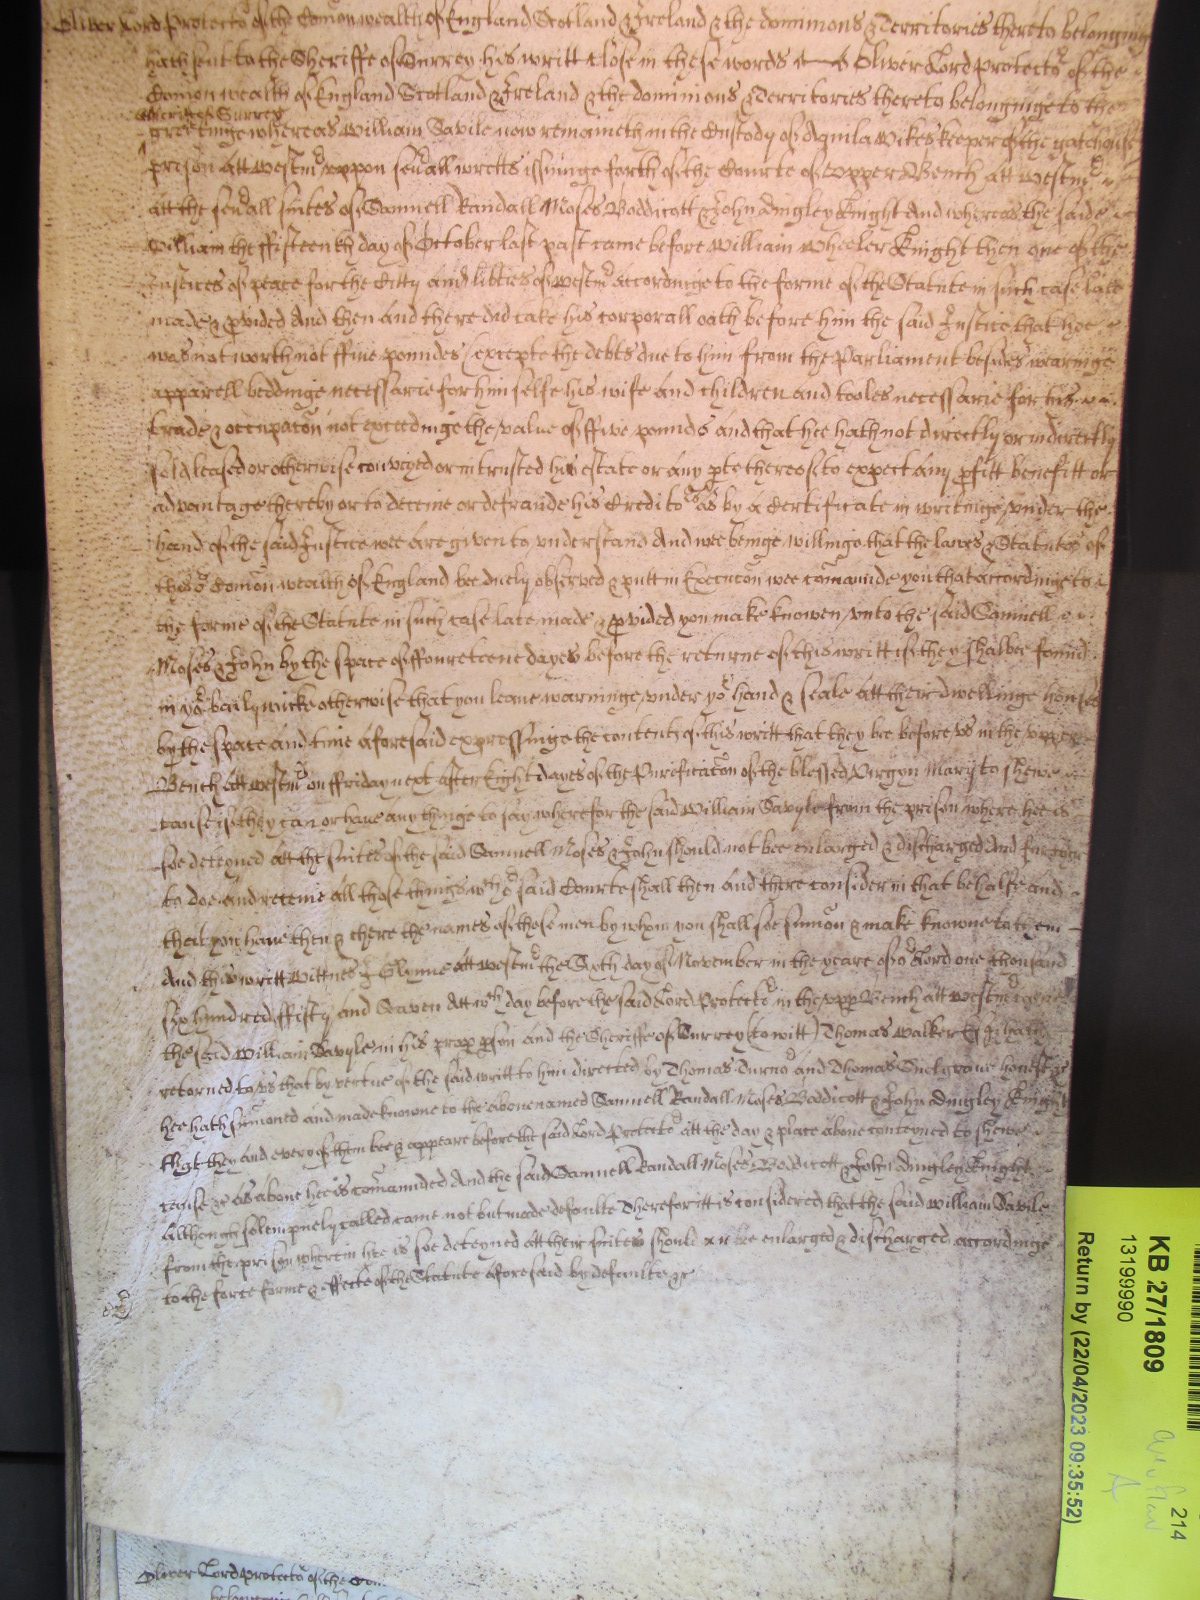 Oliver Lord Protector of the Comon wealth of England Scotland & Ireland & the dominions & Territories thereto belonginge
hath sent to the Sheriffe of Surrey his writt close in these words Oliver Lord Protector of the
Comon wealth of England Scotland & Ireland & the dominions & Territories thereto belonginge to the
Sheriffe of Surrey
greetinge whereas William Savile now remaineth in the Custody of Aquila Wikes keeper of the gatehouse
prison att Westmr uppon severall writts issuinge forth of the Courte of Upper Bench att Westmr
att the severall suites of Samuell Randall Moses Boddicott & John Dingley Knight And whereas the saide
William the ffifteenth day of October last past came before William Wheeler Knight then one of the
Justices of peace for the Citty and libties of Westmr accordinge to the forme of the Statute in such case late
made & pvided And then and there did take his corporall oath before him the said Justice that hee
was not worth not ffive poundes (excepte the debts due to him from the Parliament besides wearinge
apparell beddinge necessarie for himselfe his wife and children and tooles necessarie for his
trade & occupacon not exceedinge the value of ffive pounds and that hee hath not directly or indirectly
sold leased or otherwise conveyed or intrusted his estate or any pte thereof to expect any pfitt benefitt or
advantage thereby or to deceive or defraude his Creditors as by a Certificate in writinge under the
hand of the said Justice wee are given to understand And wee beinge willinge that the lawes & Statutes of
this Comon wealth of England bee duely observed & putt in Execucon wee comaunde you that accordinge to
the forme of the Statute in such case late made & pvided you make knowen unto the said Samuell
Moses & John by the space of ffourteene dayes before the returne of this writt if they shalbee found
in yor bailywicke otherwise that you leave warninge under yor hand & seale att their dwellinge houses
by the space and time aforesaid expressinge the contents of this writt that they bee before us in the upper
Bench att Westmr on ffriday next after Eight dayes of the Purificacon of the blessed Virgyn Mary to shewe
cause if they can or have any thinge to say wherefor the said William Savyle from the prison where hee is
soe deteyned att the suites of the said Samuell Moses & John should not bee enlarged & discharged And further
to doe and receive all those things wch or said Courte shall then and there consider in that behalfe and
that you have then & there the names of those men by whom you shall soe sumon & make knowne to them
And this writt Wittnes J Glynne att Westmr the Sixth day of November in the yeare of or Lord one thousand
Six hundred ffifty and Seaven Att wch day before the said Lord Protector in the upp Bench att Westmr came
the said William Savyle in his prop pson and the Sheriffe of Surrey (to witt) Thomas Walker Esqr hath
retorned to us that by vertue of the said writt to him directed by Thomas and Thomas Snelgrove honest &c
hee hath sumoned and made knowne to the above named Samuell Randall Moses Boddicott & John Dingley Knight
that they and every of them bee & appeare before the said Lord Protector att the day & place above conteyned to shewe
cause &c as above hee is comaunded And the said Samuell Randall Moses Boddicott & John Dingley Knight
Although solempnely called came not but made defaulte Therefor itt is considered that the said William Savile
from the prison wherein hee is soe deteyned att their suites should bee enlarged & discharged accordinge
to the force forme & effecte of the Statute aforesaid by defaulte &c
Oliver Lord Protector of the Com
KB 27/1809
214
13199990
Return by (22/04/2023 09:35:52)